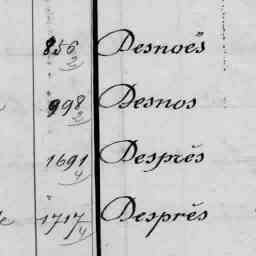 856 Desnoës
2
998 Desnos
2
1691 Després
4
1717 Després
4